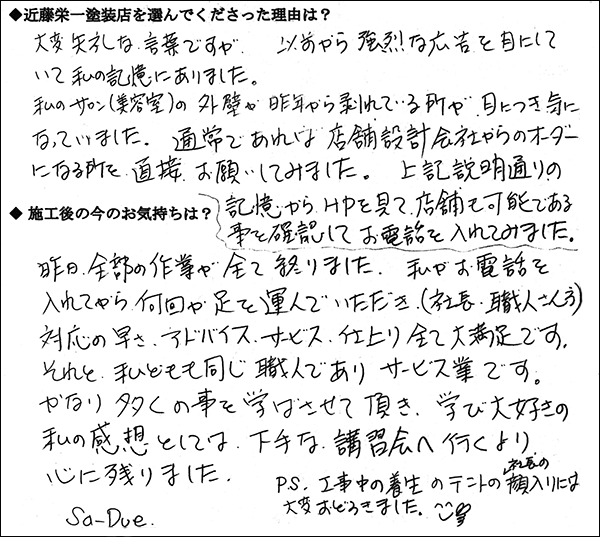 ◆近藤栄一塗装店を選んでくださった理由は?
大変失礼な言葉ですが、以前から強烈な広告を目にして
いて私の記憶にありました。
私のサロン(美容室)の外壁が昨年から剥れている所が目につき気に
なっていました。通常であれば店舗設計会社からのオーダー
になる所を直接お願いしてみました。上記説明通りの
記憶からHPを見て、店舗も可能である
事を確認してお電話を入れてみました。
◆ 施工後の今のお気持ちは?
昨日、全部の作業が全て終りました。私がお電話を
入れてから何回か足を運んでいただき、(社長・職人さん方)
対応の早さ、アドバイス、サービス、仕上り全て大満足です。
それと、私どもも同じ職人でありサービス業です。
かなり多くの事を学ばさせて頂き、学び大好きの
私の感想としては、下手な講習会へ行くより
心に残りました。
P.S. 工事中の養生のテントの社長の顔入りには
大変おどろきました。
Sa-Due.